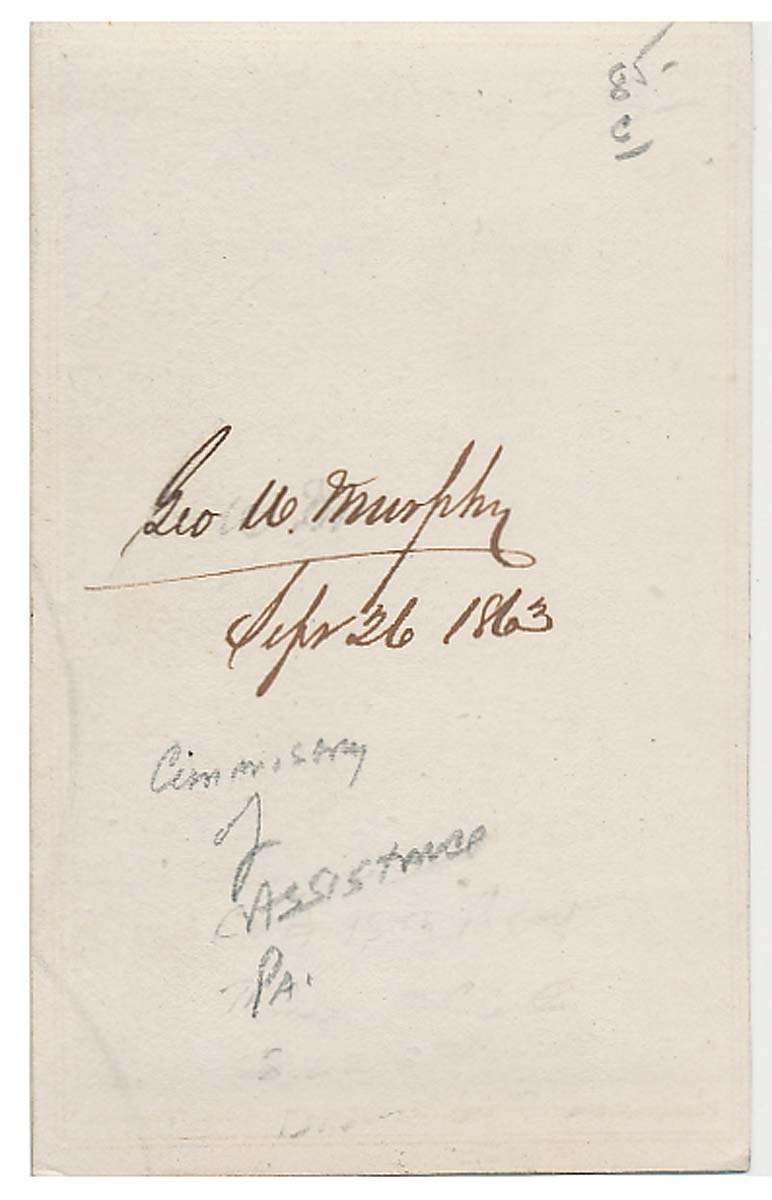 85
Geo W. Murphy
Sept 26 1863
Commissary
of
Assistance
Pa.